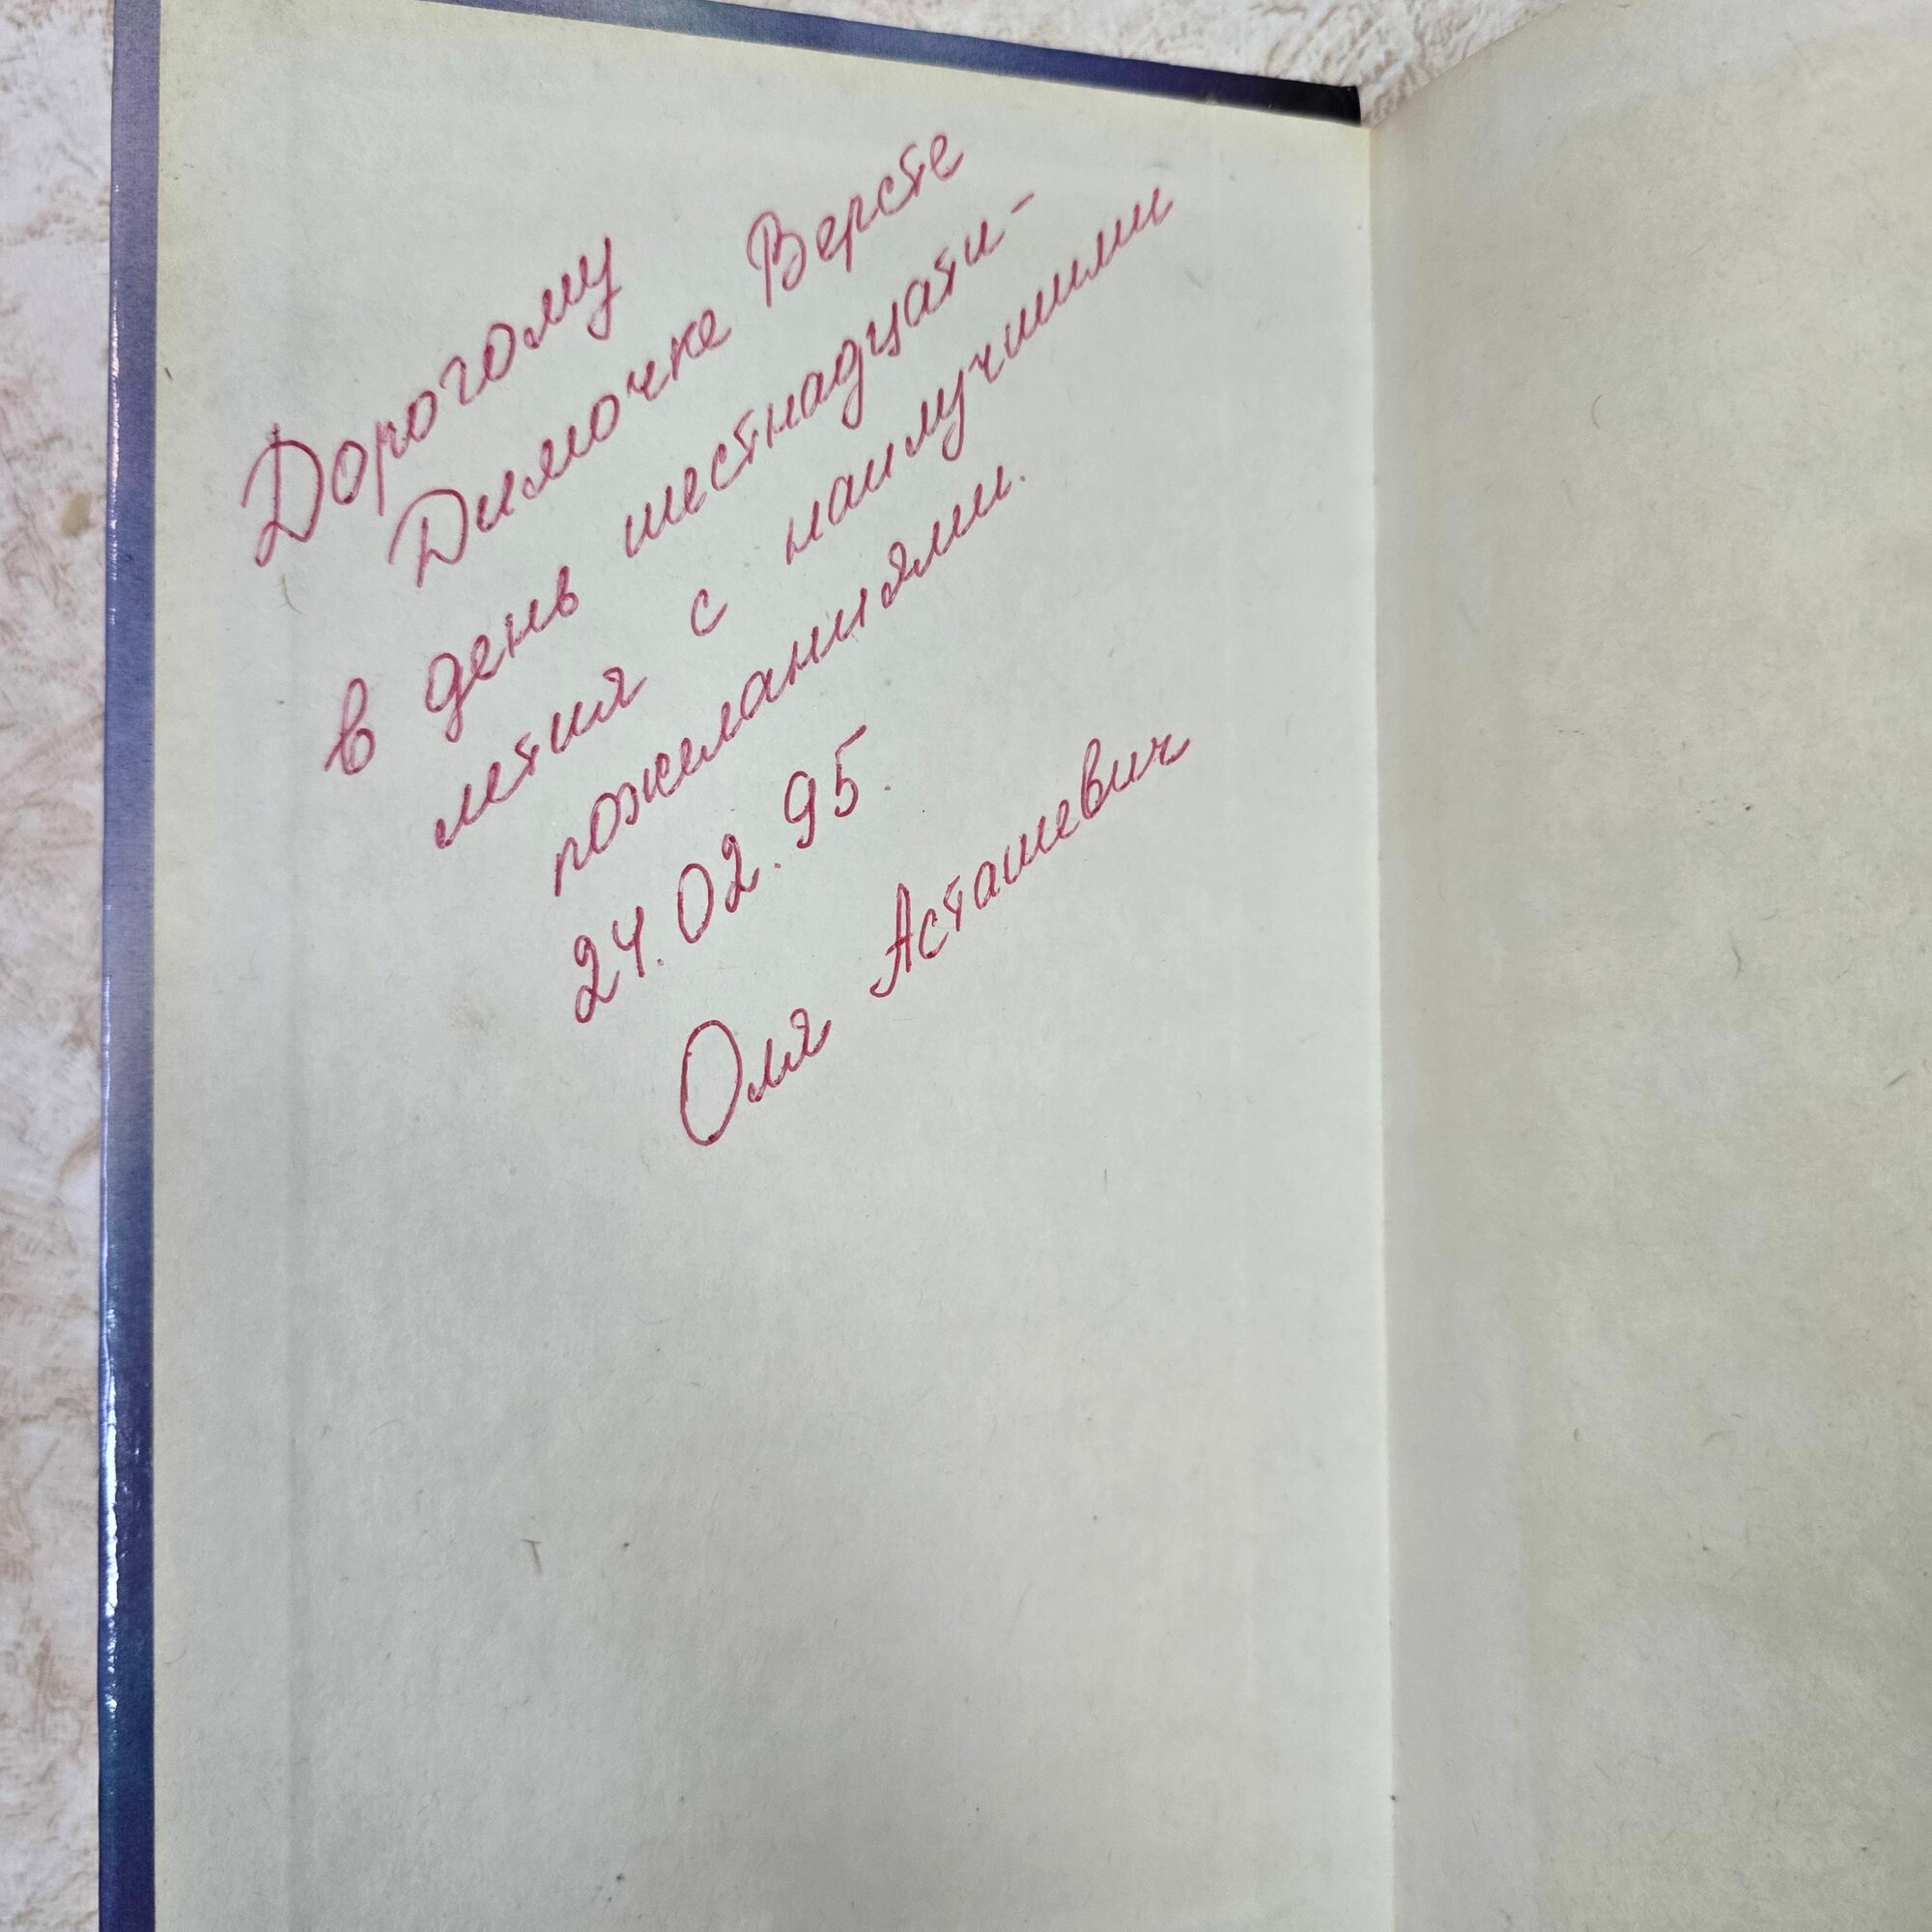 Дорогому
Димочке Версте
в день шестнадцати-
летия с наилучшими
пожеланиями.
24.02.95.
Оля Асташевич